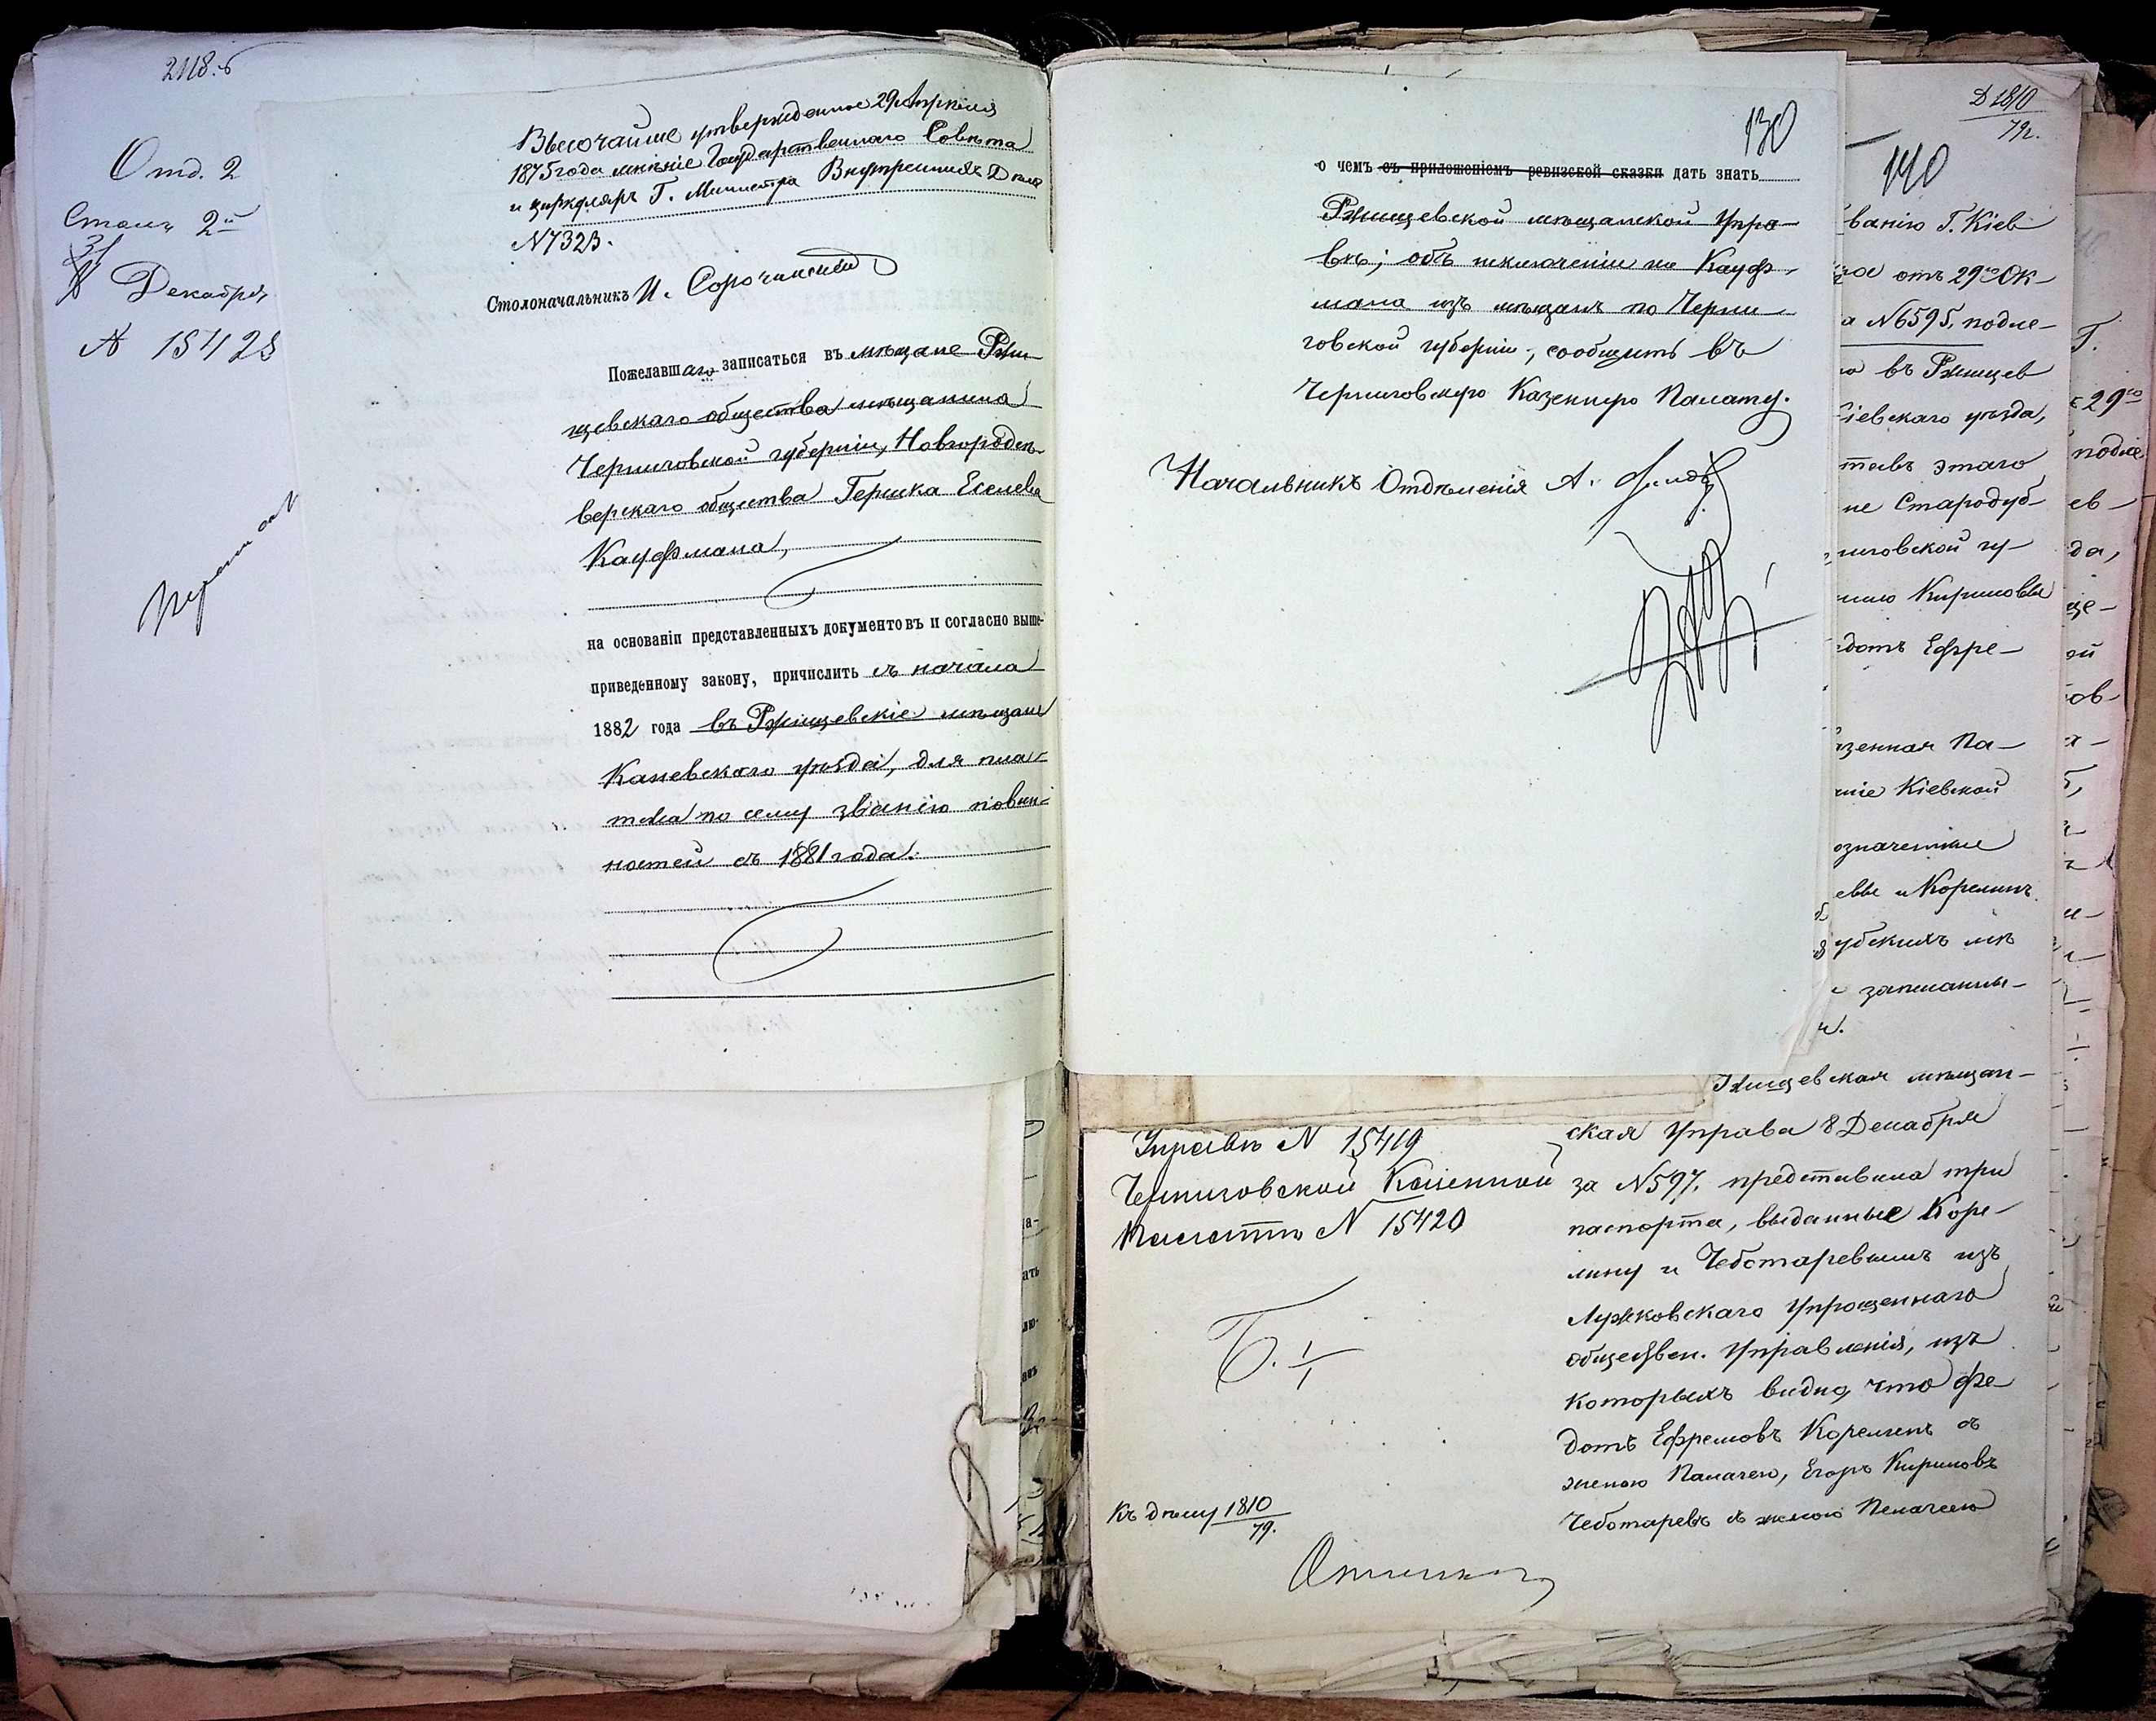 2118.б
Отд. 2
Столъ 2й
31
Декабря
№ 15423
Высочайше утвержденное 29 Апрѣля
1875 года мнѣніе Государственнаго Совѣта
и циркуляръ Г. Министра Внутреннихъ Дѣлъ
№ 7323.
Столоначальникъ И.
Пожелавшаго записаться въ мѣщане Ржи-
щевскаго общества мѣщанина
Черниговской губерніи, Новгородсѣ-
верскаго общества Гершка Еселева
Кауфмана,
на основаніи представленныхъ документовъ и согласно выше-
приведенному закону, причислить съ начала
1882 года въ Ржищевскіе мѣщане
Каневскаго уѣзда, для пла-
тежа по сему званію повин-
ностей съ 1881 года.
130
о чемъ съ приложеніемъ ревизской сказки дать знать
Ржищевской мѣщанской Упра-
вѣ; объ исключеніи же Кауф-
мана изъ мѣщанъ по Черни-
говской губерніи, сообщить въ
Черниговскую Казенную Палату.
Начальникъ Отдѣленія А.
Д 1810
79.
140
ванію Г. Кіев
отъ 29го Ок-
а № 6595, подле-
въ Ржищев
Кіевскаго уѣзда,
этаго
не Стародуб-
ниговской гу-
Кириловы
дотъ Ефре-
зенная Па-
ніе Кіевской
означенные
евы и Корелинъ
убскихъ мѣ
записаны-
Г.
29го
подле
ев-
да,
ще-
ой
ов-
Ржищевская мѣщан-
ская Управа 8 Декабря
за № 597, представила три
паспорта, выданные Коре-
лину и Чеботаревымъ изъ
Лужковскаго Упрощеннаго
обществен. Управленія, изъ
которыхъ видно, что Фе-
дотъ Ефремовъ Корелинъ съ
женою Палагею, Егоръ Кириловъ
Чеботаревъ съ женою Пелагеею
Управѣ № 15419
Черниговской Казенной
Палатѣ № 15420
Къ дѣлу 1810
79.